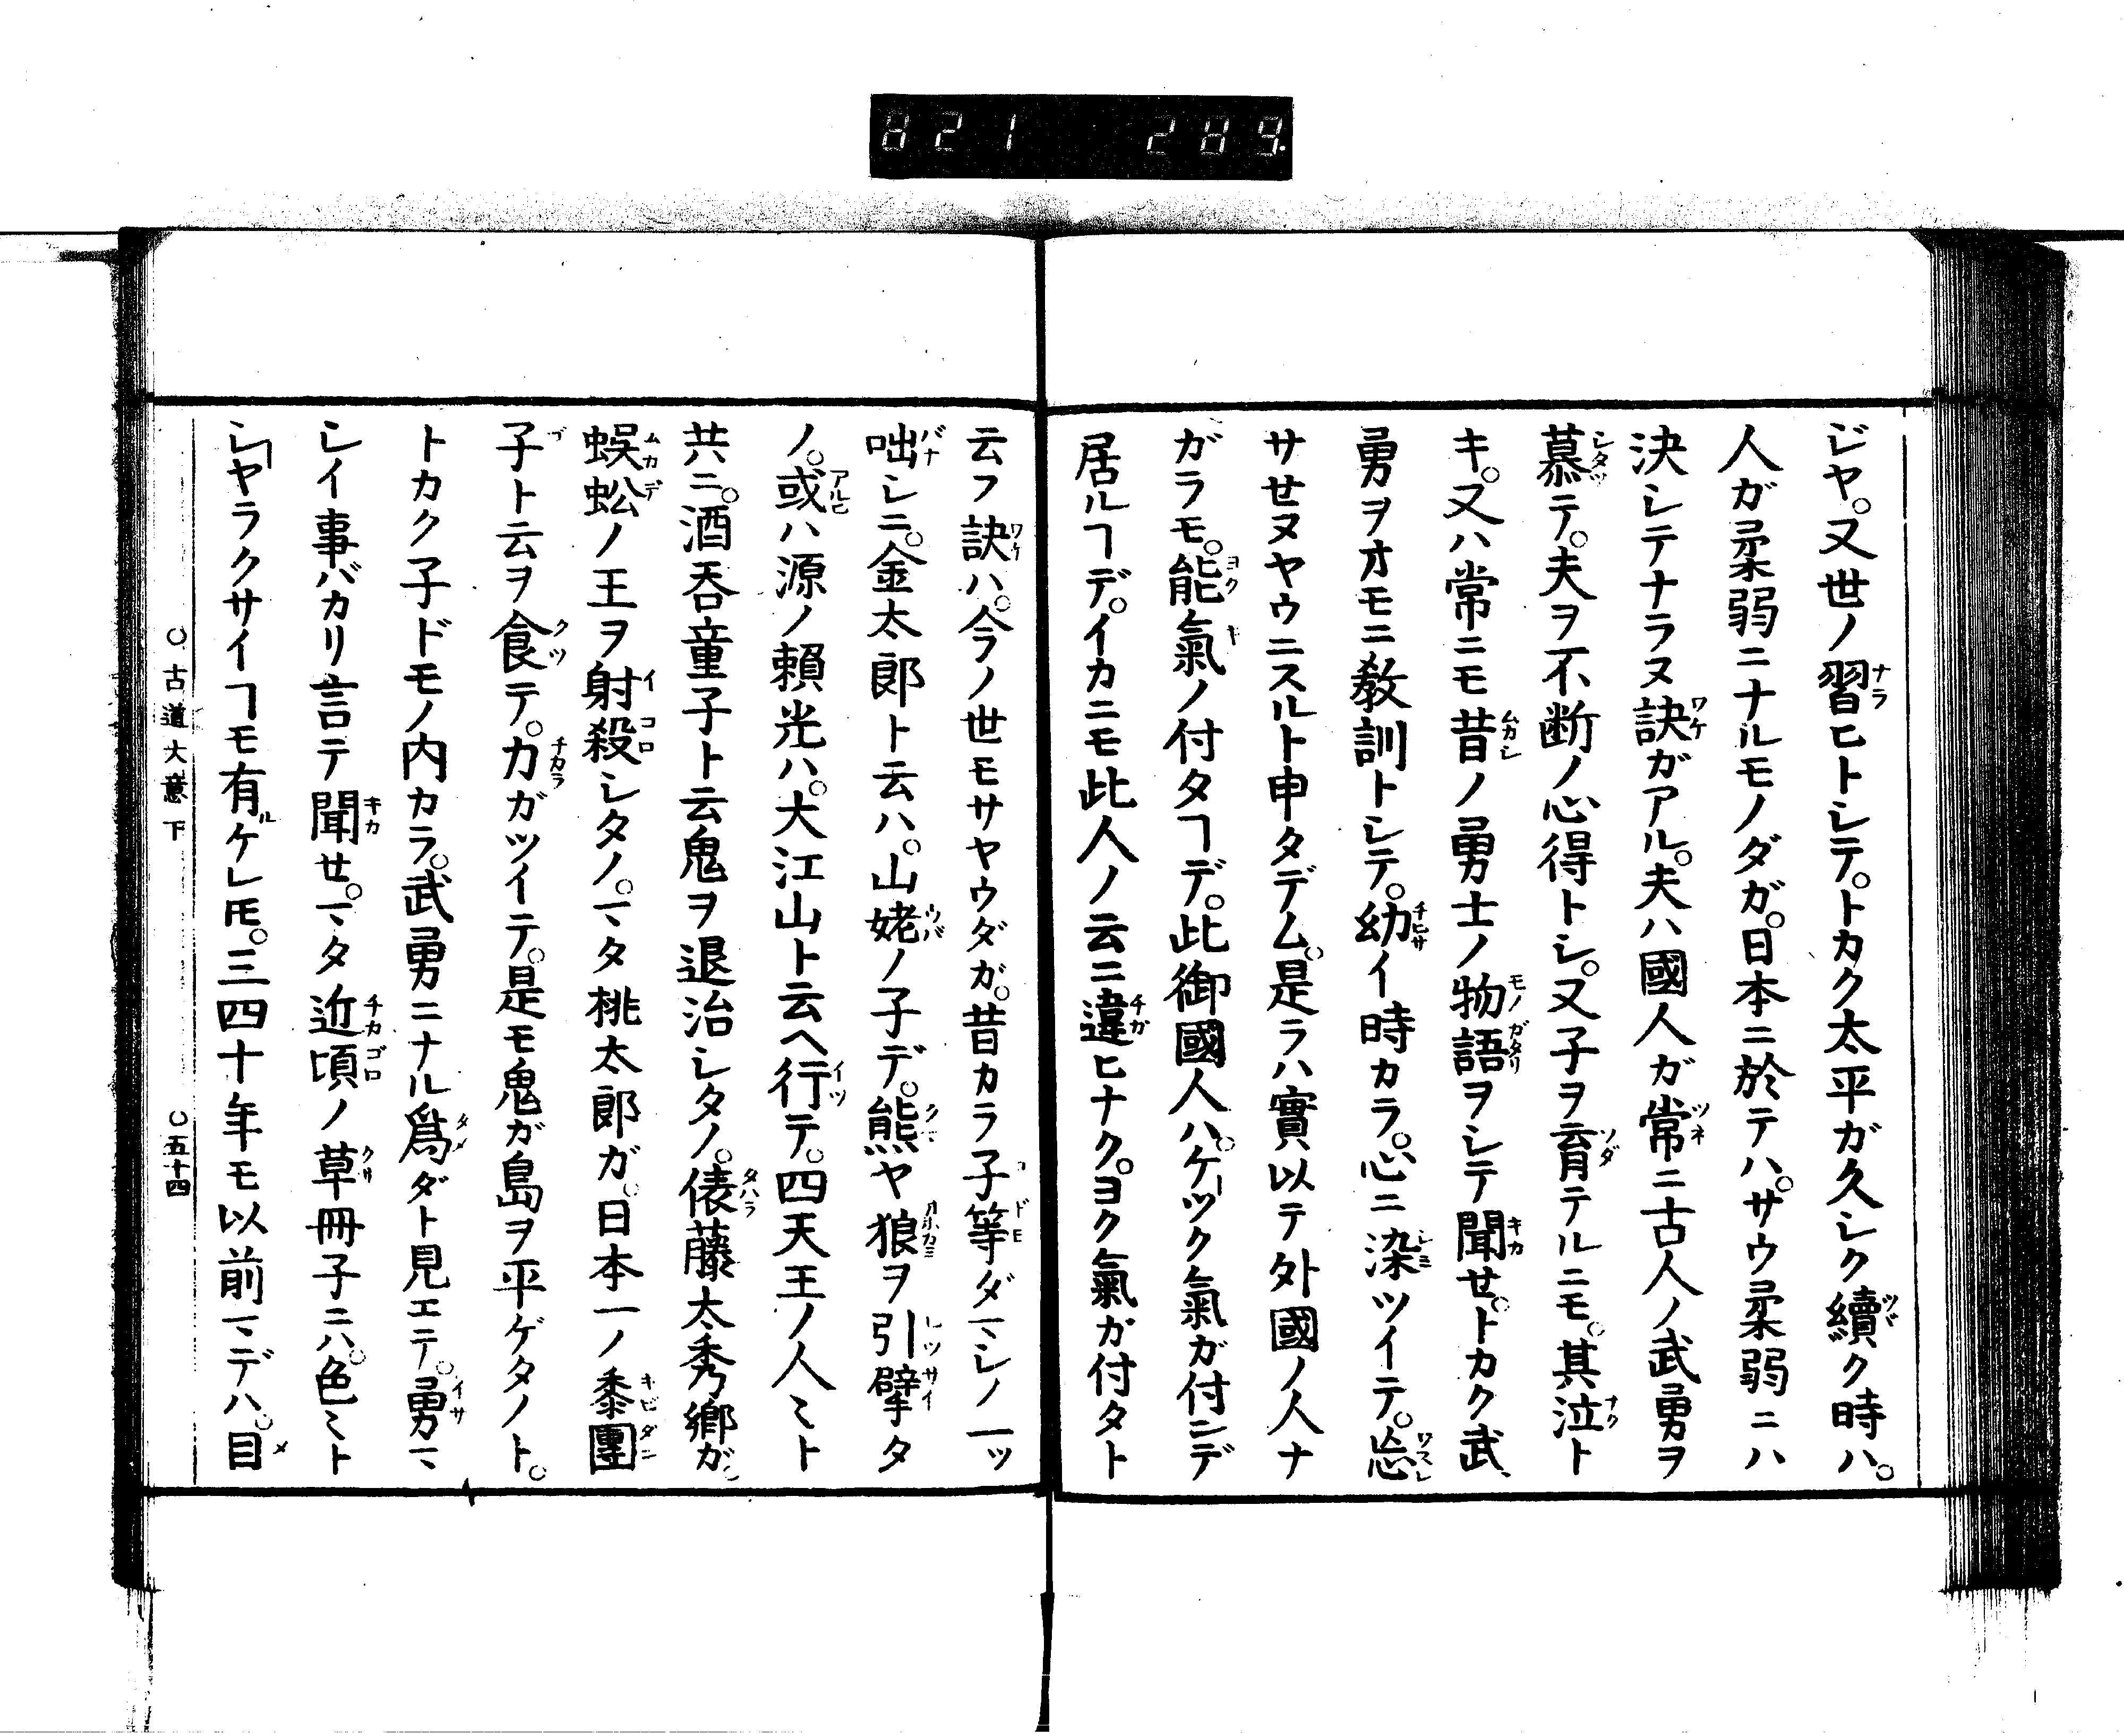 821 289.
ジヤ。又世ノ習ヒトシテ。トカク太平ガ久シク續ク時ハ。
人ガ柔弱ニナルモノダガ。日本ニ於テハ。サウ柔弱ニハ
決シテナラヌ訣ガアル。夫ハ國人ガ常ニ古人ノ武勇ヲ
慕テ。夫ヲ不断ノ心得トシ。又子ヲ育テルニモ。其泣ト
キ。又ハ常ニモ昔ノ勇士ノ物語ヲシテ聞せ。トカク武
勇ヲオモニ教訓トシテ。幼イ時カラ。心ニ染ツイテ。忘
サせヌヤウニスルト申タデム。是ラハ實以テ外國ノ人ナ
ガラモ。能氣ノ付タヿデ。此御國人ハ。ケーツク氣ガ付ニデ
居ルヿデ。イカニモ此人ノ云ニ違ヒナク。ヨク氣ガ付タト
云フ訣ハ。今ノ世モサヤウダガ。昔カラ子等ダマシノ一ッ
咄シニ。金太郎ト云ハ。山姥ノ子デ。熊ヤ狼ヲ引擘タ
ノ。或ハ源ノ賴光ハ。大江山ト云ヘ行テ。四天王ノ人〻ト
共ニ。酒呑童子ト云鬼ヲ退治シタノ。俵藤太秀郷ガ
蜈蚣ノ王ヲ射殺シタノ。マタ桃太郎ガ。日本一ノ黍團
子ト云ヲ食テ。力ガツイテ。是モ鬼ガ島ヲ平ゲタノト。
トカク子ドモノ内カラ。武勇ニナル爲ダト見エテ。勇マ
シイ事バカリ言テ聞せ。マタ近頃ノ草冊子ニハ。色〻ト
シヤラクサイヿモ有ケレ𪜈。三四十年モ以前マデハ。目
○古道大意下 ○五十四